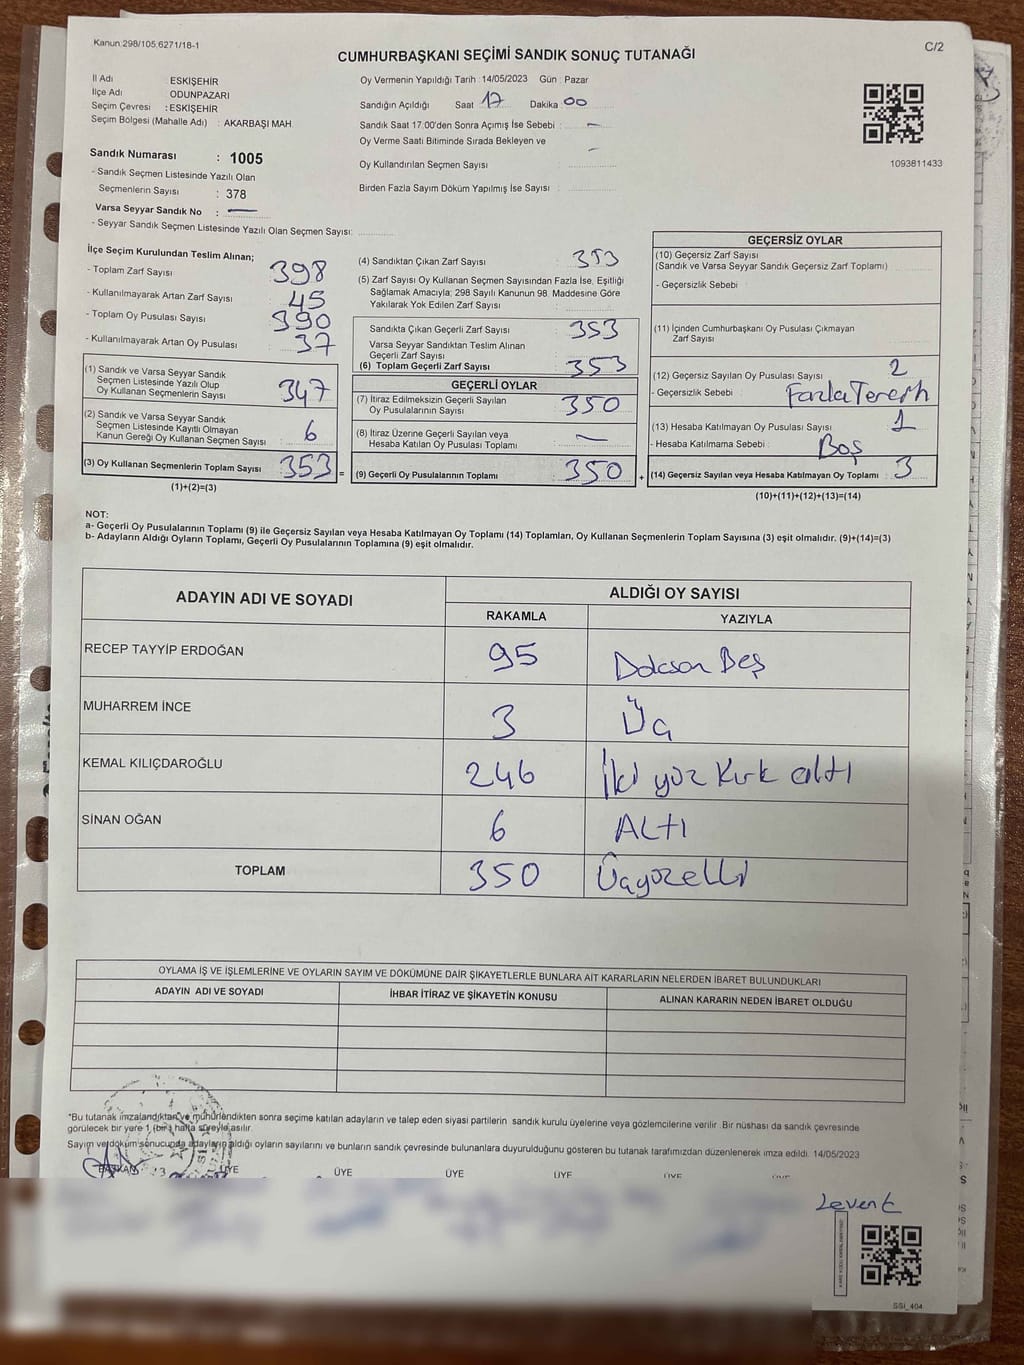 Kanun:298/105,6271/18-1
C/2
CUMHURBAŞKANI SEÇİMİ SANDIK SONUÇ TUTANAĞI
İl Adı ESKİŞEHİR
İlçe Adı ODUNPAZARI
Seçim Çevresi : ESKİŞEHİR
Seçim Bölgesi (Mahalle Adı) : AKARBAŞI MAH.
Sandık Numarası : 1005
- Sandık Seçmen Listesinde Yazılı Olan
Seçmenlerin Sayısı : 378
Varsa Seyyar Sandık No : —
- Seyyar Sandık Seçmen Listesinde Yazılı Olan Seçmen Sayısı:
Oy Vermenin Yapıldığı Tarih : 14/05/2023 Gün : Pazar
Sandığın Açıldığı Saat 17 Dakika 00
Sandık Saat 17:00'den Sonra Açımış İse Sebebi : —
Oy Verme Saati Bitiminde Sırada Bekleyen ve —
Oy Kullandırılan Seçmen Sayısı
Birden Fazla Sayım Döküm Yapılmış İse Sayısı :
1093811433
İlçe Seçim Kurulundan Teslim Alınan;
- Toplam Zarf Sayısı 398
- Kullanılmayarak Artan Zarf Sayısı 45
- Toplam Oy Pusulası Sayısı 390
- Kullanılmayarak Artan Oy Pusulası 37
(1) Sandık ve Varsa Seyyar Sandık
Seçmen Listesinde Yazılı Olup
Oy Kullanan Seçmenlerin Sayısı 347
(2) Sandık ve Varsa Seyyar Sandık
Seçmen Listesinde Kayıtlı Olmayan
Kanun Gereği Oy Kullanan Seçmen Sayısı 6
(3) Oy Kullanan Seçmenlerin Toplam Sayısı 353 =
(1)+(2)=(3)
(4) Sandıktan Çıkan Zarf Sayısı 353
(5) Zarf Sayısı Oy Kullanan Seçmen Sayısından Fazla İse, Eşitliği
Sağlamak Amacıyla; 298 Sayılı Kanunun 98. Maddesine Göre
Yakılarak Yok Edilen Zarf Sayısı
Sandıkta Çıkan Geçerli Zarf Sayısı 353
Varsa Seyyar Sandıktan Teslim Alınan
Geçerli Zarf Sayısı
(6) Toplam Geçerli Zarf Sayısı 353
GEÇERLİ OYLAR
(7) İtiraz Edilmeksizin Geçerli Sayılan
Oy Pusulalarının Sayısı 350
(8) İtiraz Üzerine Geçerli Sayılan veya
Hesaba Katılan Oy Pusulası Toplamı —
(9) Geçerli Oy Pusulalarının Toplamı 350 +
GEÇERSİZ OYLAR
(10) Geçersiz Zarf Sayısı
(Sandık ve Varsa Seyyar Sandık Geçersiz Zarf Toplamı)
- Geçersizlik Sebebi :
(11) İçinden Cumhurbaşkanı Oy Pusulası Çıkmayan
Zarf Sayısı
(12) Geçersiz Sayılan Oy Pusulası Sayısı 2
- Geçersizlik Sebebi : Fazla
(13) Hesaba Katılmayan Oy Pusulası Sayısı 1
- Hesaba Katılmama Sebebi : Boş
(14) Geçersiz Sayılan veya Hesaba Katılmayan Oy Toplamı 3
(10)+(11)+(12)+(13)=(14)
NOT:
a- Geçerli Oy Pusulalarının Toplamı (9) ile Geçersiz Sayılan veya Hesaba Katılmayan Oy Toplamı (14) Toplamları, Oy Kullanan Seçmenlerin Toplam Sayısına (3) eşit olmalıdır. (9)+(14)=(3)
b- Adayların Aldığı Oyların Toplamı, Geçerli Oy Pusulalarının Toplamına (9) eşit olmalıdır.
ADAYIN ADI VE SOYADI ALDIĞI OY SAYISI
RAKAMLA YAZIYLA
RECEP TAYYİP ERDOĞAN 95 Doksan Beş
MUHARREM İNCE 3 Üç
KEMAL KILIÇDAROĞLU 246 İki yüz Kırk altı
SİNAN OĞAN 6 ALtı
TOPLAM 350 Üçyüzelli
OYLAMA İŞ VE İŞLEMLERİNE VE OYLARIN SAYIM VE DÖKÜMÜNE DAİR ŞİKAYETLERLE BUNLARA AİT KARARLARIN NELERDEN İBARET BULUNDUKLARI
ADAYIN ADI VE SOYADI İHBAR İTİRAZ VE ŞİKAYETİN KONUSU ALINAN KARARIN NEDEN İBARET OLDUĞU
*Bu tutanak imzalandıktan ve mühürlendikten sonra seçime katılan adayların ve talep eden siyasi partilerin sandık kurulu üyelerine veya gözlemcilerine verilir. Bir nüshası da sandık çevresinde
görülecek bir yere 1 (bir) hafta süreyle asılır.
Sayım ve döküm sonucunda adayların aldığı oyların sayılarını ve bunların sandık çevresinde bulunanlara duyurulduğunu gösteren bu tutanak tarafımızdan düzenlenerek imza edildi. 14/05/2023
BAŞKAN ÜYE ÜYE ÜYE ÜYE ÜYE ÜYE
Levent
SSİ_404